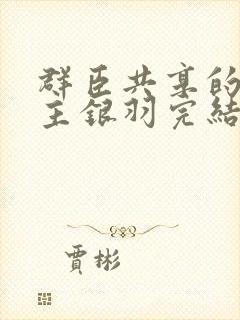 群臣共享的
主銀羽完結
賈彬